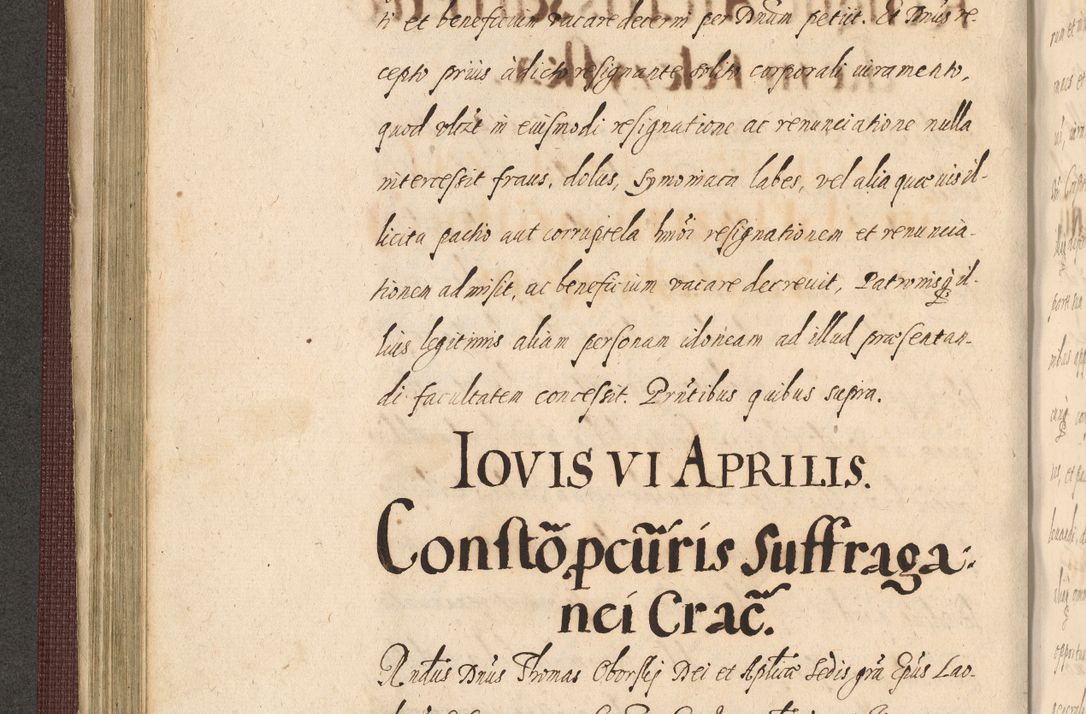 ti et beneficium vacare decerni per Dnum petiit. Et Dnus re-
cepto prius à dicto resignante solito corporali iuramento,
quod in eiusmodi resignatione ac renunciatione nulla
intercessit fraus, dolus, symoniaca labes, vel alia quævis il-
licita pactio aut corruptela hmõi resignationem et renuncia-
tionem admisit, ac beneficium vacare decrevit, Patronisq́ il-
lius legitimis aliam personam idoneam ad illud præsentan-
di facultatem concessit. Prñtibus quibus supra.
IOVIS VI APRILIS.
Constõ pcũris Suffraga-
nei Crac̃.
Rndus Dnus Thomas Oborskij Dei et Aplicæ Sedis grã Epus Lao-